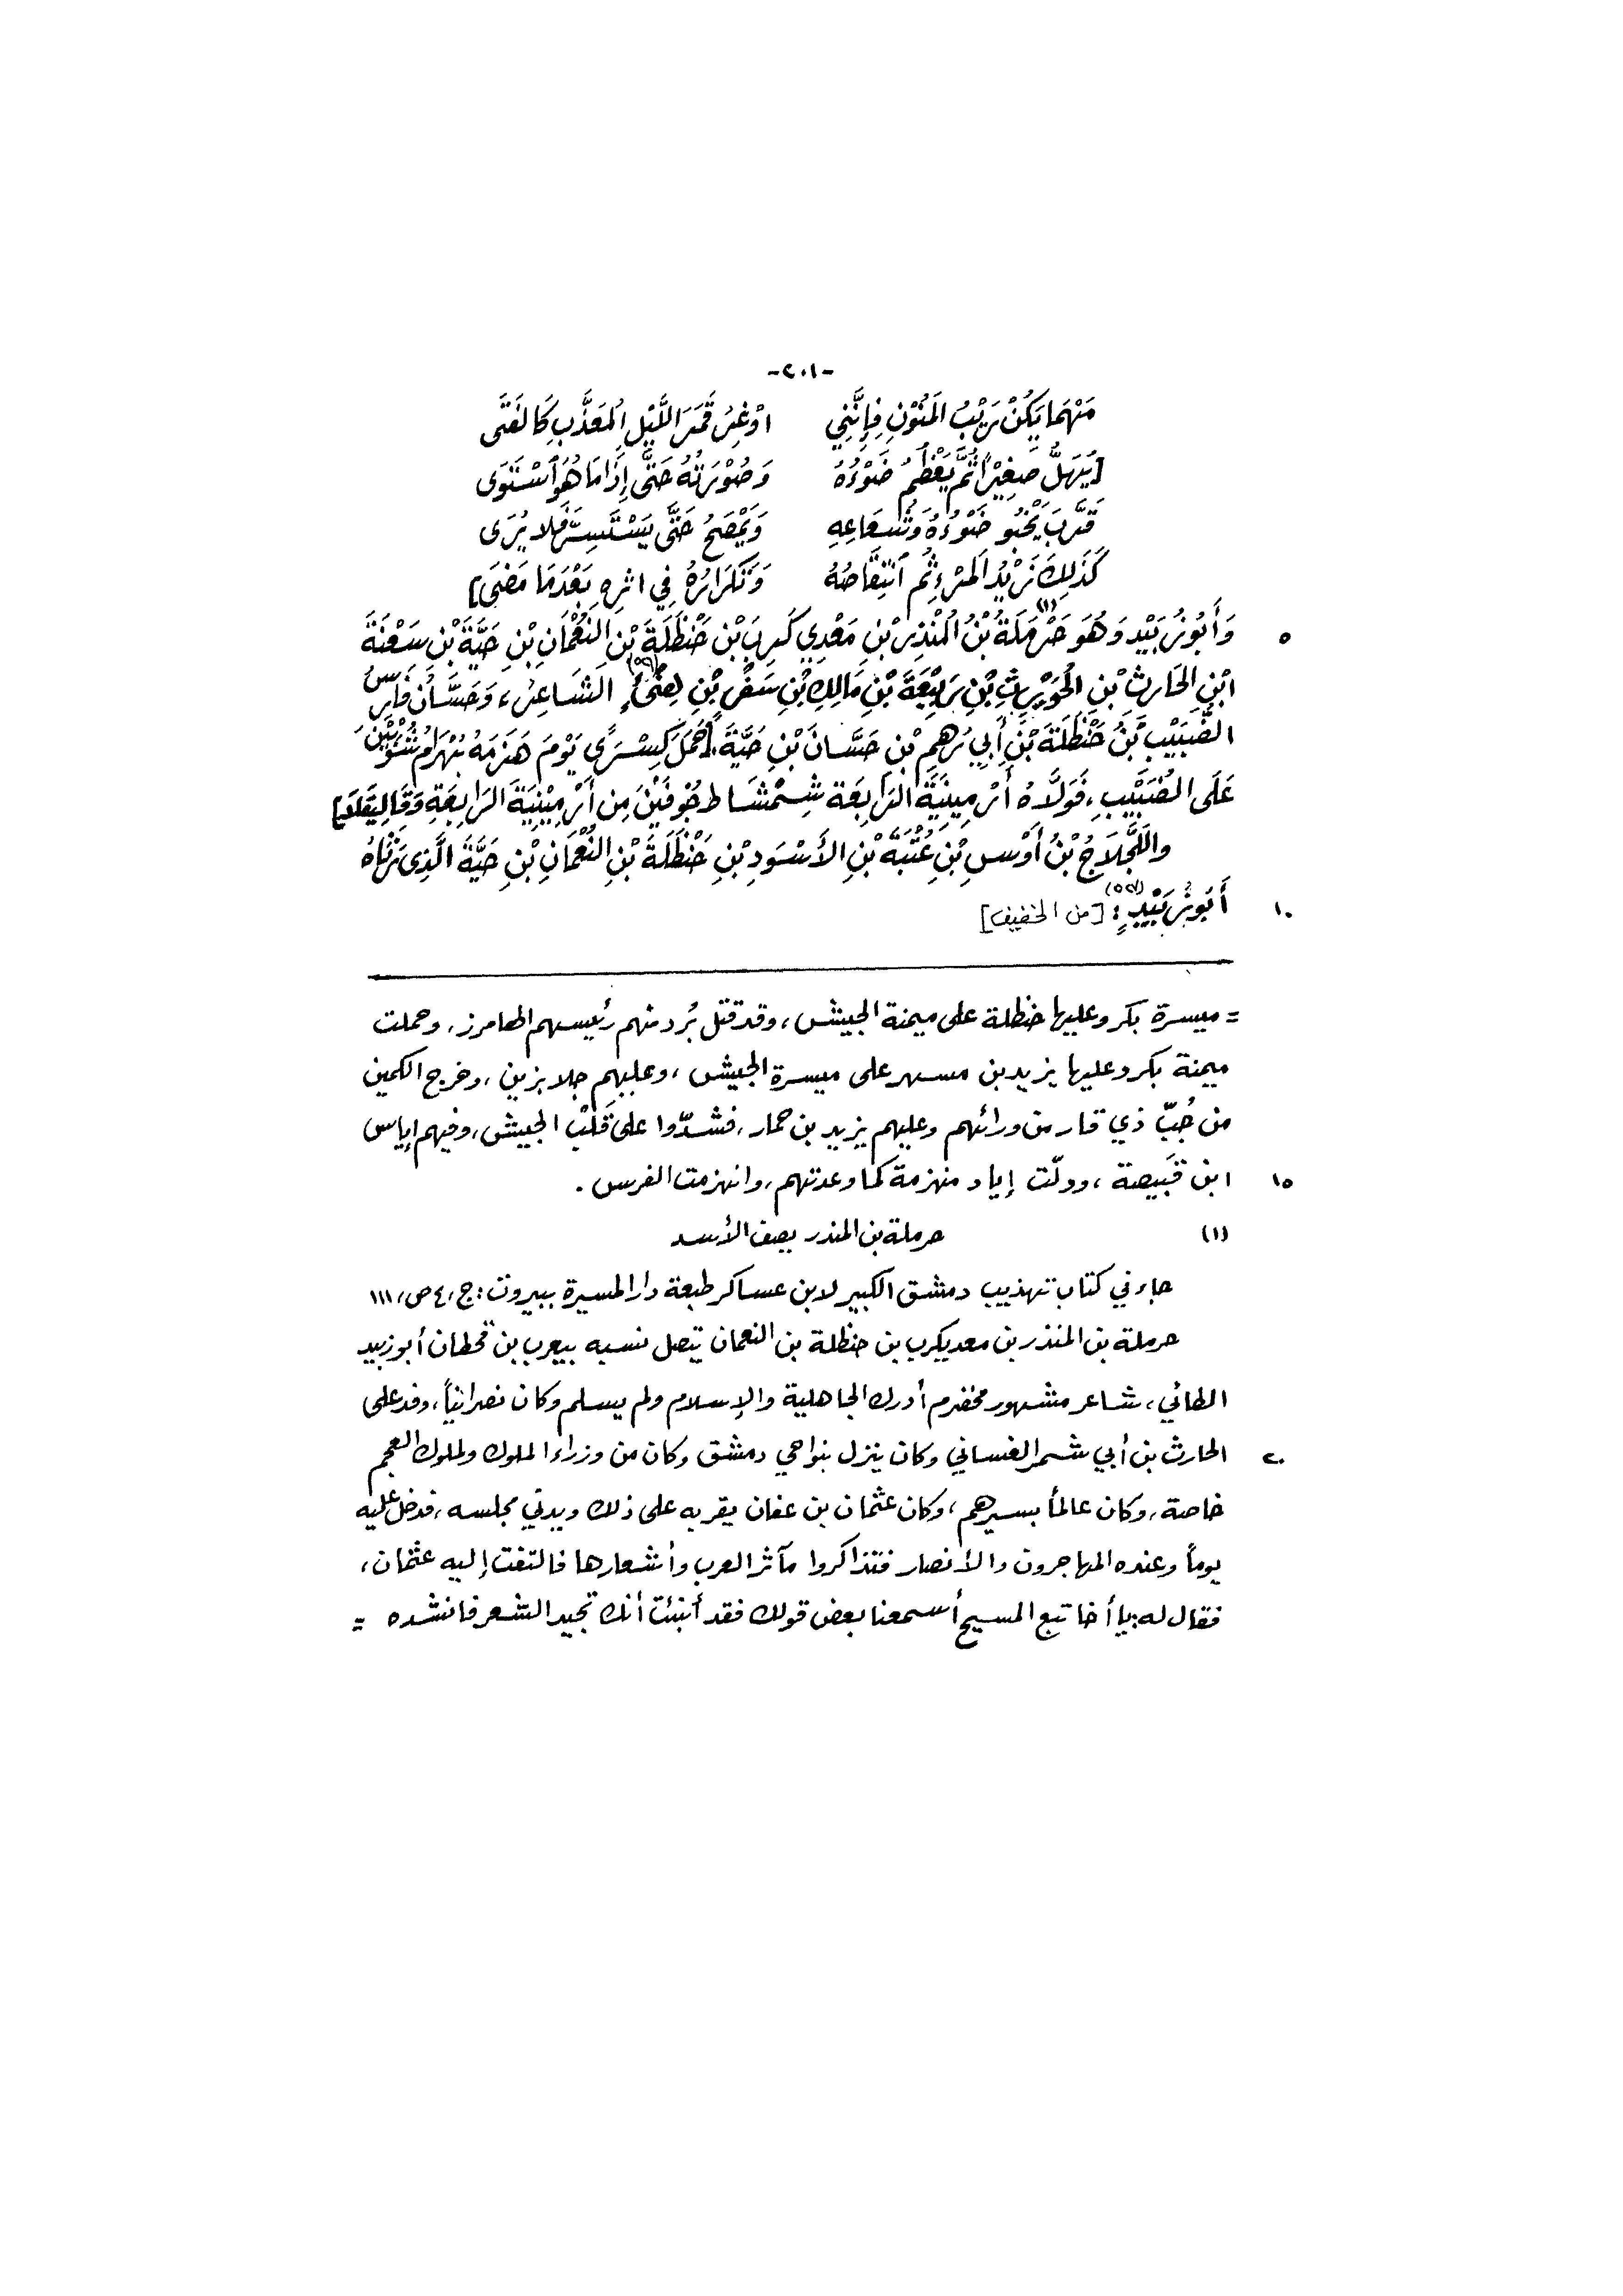 -٢٠١-
مَهْمَا يَكُنْ رَيْبُ المَنُوْنِ فَإِنَّنِي أوْغِرُ قَمَرَ اللَّيْلِ المُعَذَّبِ كَالفَتَى
[يَهِلُّ صَغِيْراً ثُمَّ يَعْظُمُ ضَوْءُهُ وَصُوْرَتُهُ حَتَّى إِذَا مَا هُوَ ٱسْتَوَى
قَرَّبَ يَخْبُو ضَوْءُهُ وَشُعَاعِهِ وَيَمْصَحُ حَتَّى يَسْتَسِرَّ فَلا يُرَى
كَذَلِكَ زَيْدُ المَرْءِ ثُمَّ ٱنْتِقَاصُهُ وَتَكْرَارُهُ فِي اثْرِهِ بَعْدَمَا مَضَى]
٥ وَأَبُو زُبَيْدٍ وَهُوَ حَرْمَلَةُ (١) بْنُ المُنْذِرِ بْنِ مَعْدِي كَرِبَ بْنِ حَنْظَلَةَ بْنِ النُّعْمَانِ بْنِ حَيَّةَ بْنِ سَعْنَةَ
ابْنِ الحَارِثِ بْنِ الحُوَيْرِثِ بْنِ رَبِيْعَةَ بْنِ مَالِكِ بْنِ سَفْرِ بْنِ هِنْىءٍ الشَاعِرُ، وَحَسَّانُ فَارِسُ
الضُّبَيْبِ بْنُ حَنْظَلَةَ بْنِ أَبِي رُهْمِ بْنِ حَسَّانَ بْنِ حَيَّةَ [حَمَلَ كِسْرَى يَوْمَ هَزَمَهُ بَهْرَامُ شُوْبِيْنَ
عَلَى الضُبَيْبِ، فَوَلَّاهُ أَرْمِينِيَةَ الرَابِعَة شِمْشَاط خُوْفَيْنَ مِن أَرْمِيْنِيَةَ الرَابِعَةِ وَقَالِيْقَلَا]
والَّلجْلَاجُ بْنُ أَوْسِ بْنِ عُتْبَةَ بْنِ الأَسْوَدِ بْنِ حَنْظَلَةَ بْنِ النُّعْمَانِ بْنِ حَيَّةَ الَّذِي رَثَاهُ
١٠ أَبُو زُبَيْدٍ: [من الخفيف]
= ميسرة بكر وعليها حنظلة على ميمنة الجيش، وقد قتل بُرد منهم رئيسهم الهامرز، وحملت
ميمنة بكر وعليها يزيد بن مسهر على ميسرة الجيش، وعليهم جلابزين، وخرج الكمين
من جُبّ ذي قار من ورائهم وعليهم يزيد بن حمار، فشدّوا على قَلْب الجيش، وفيهم إياس
١٥ ابن قَبَيصة، وولّت إياد منهزمة كما وعدتهم، وانهزمت الفرس.
(١) حرملة بن المنذر يصف الأسد
جاء في كتاب تهذيب دمشق الكبير لابن عساكر طبعة دار المسيرة ببيروت: ج، ٤ ص، ١١١
حرملة بن المنذر بن معديكرب بن حنظلة بن النعمان يتصل نسبه بيعرب بن قحطان أبو زبيد
الطائي، شاعر مشهور مخضرم أدرك الجاهلية والإسلام ولم يسلم وكان نصرانياً، وفد على
٢٠ الحارث بن أبي شمر الغساني وكان ينزل بنواحي دمشق وكان من وزراء الملوك ولملوك العجم
خاصة، وكان عالماً بسيرهم، وكان عثمان بن عفان يقربه على ذلك ويدني مجلسه، فدخل عليه
يوماً وعنده المهاجرون والأنصار فتذاكروا مآثر العرب وأشعارها فالتفت إليه عثمان،
فقال له: يا أخا تبع المسيح أسمعنا بعض قولك فقد أنبئت أنك تجيد الشعر فانشده =